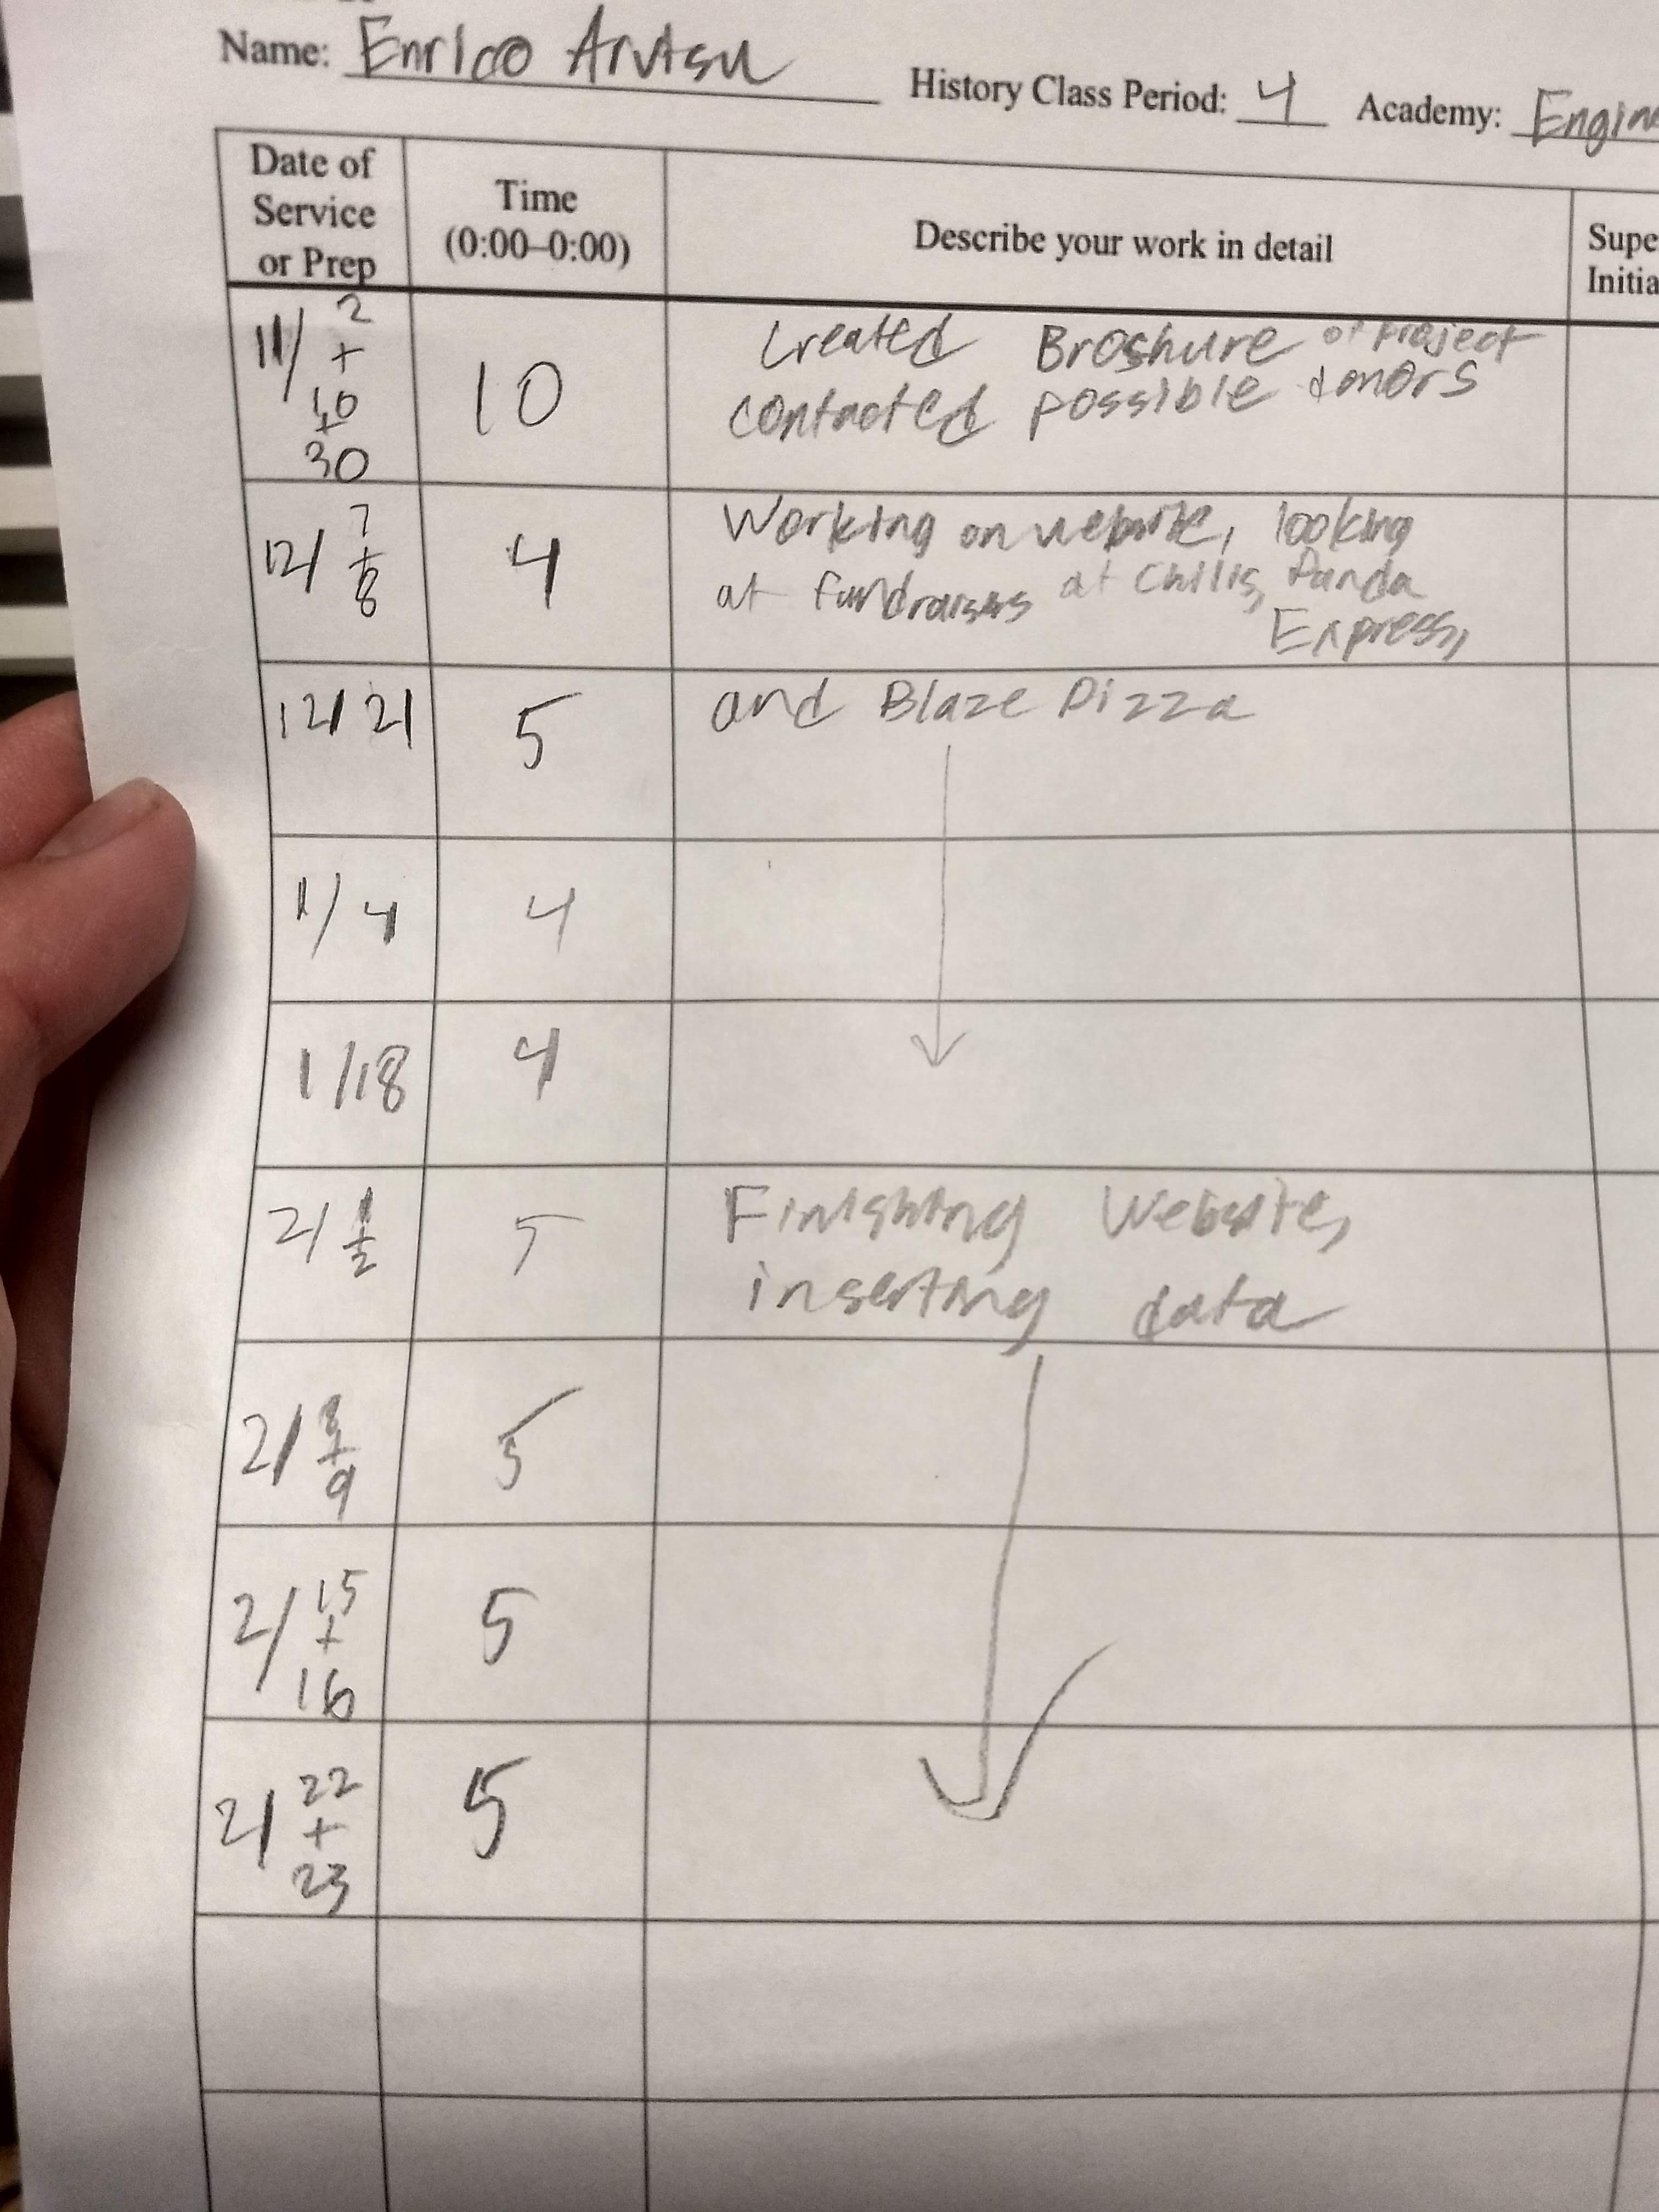 Name: Enrico Arvisu History Class Period: 4 Academy:
Date of
Service
or Prep
Time
(0:00–0:00)
Describe your work in detail
11/ 2
+
10
+
30
10
Created Broshure of Project
contacted possible donors
12/ 7
+
8
4
Working on website, looking
at fundraisers at Chilis, Panda
Express,
12/21
5
and Blaze Pizza
1/4
4
1/18
4
2/ 1
+
2
5
Finishing Website,
inserting data
2/ 8
+
9
5
2/ 15
+
16
5
2/ 22
+
23
5